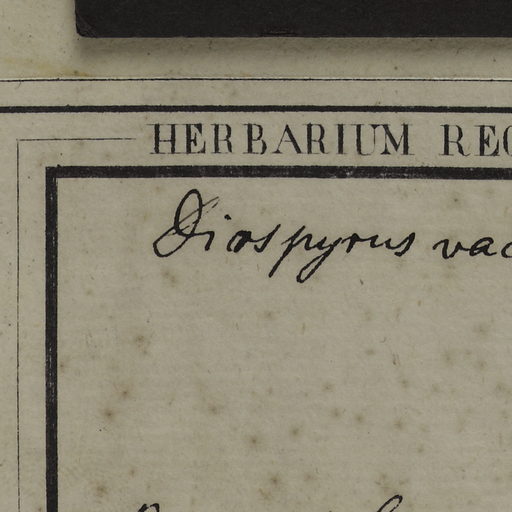 HERBARIUM REG
Diospyrus vac